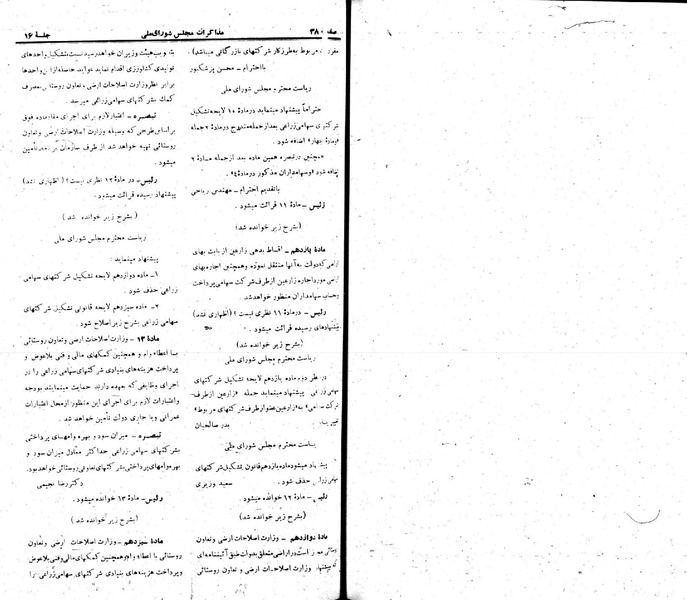 صفحه ۳۸۰
مذاکرات مجلس شورای‌ملی
جلسهٔ ۱۶
مربوط به‌طرز کار شرکتهای بازرگانی میباشد).
بااحترام ـ محسن پزشکپور
ریاست محترم مجلس شورای ملی
احتراماً پیشنهاد مینماید درمادهٔ ۱۰ لایحه تشکیل
شرکتهای سهامی زراعی بعدازجمله مندرج درمادهٔ ۲ جمله
اضافه شود.
همچنین درتبصره همین ماده بعد ازجمله مادهٔ ۲
اضافه شود «وسهامداران مذکور درمادهٔ ۴»
باتقدیم احترام ـ مهندس ریاحی
رئیس ـ مادهٔ ۱۱ قرائت میشود.
(بشرح زیر خوانده شد)
مادهٔ یازدهم ـ اقساط بدهی زارعین از بابت بهای
اراضی که‌دولت به‌آنها منتقل نموده وهمچنین اجاره‌بهای
اراضی مورداجاره زارعین ازطرف شرکت سهامی پرداخت
وبحساب سهامداران منظور خواهدشد.
رئیس ـ درمادهٔ ۱۱ نظری نیست؟ (اظهاری نشد)
پیشنهادهای رسیده قرائت میشود.
(بشرح زیر خوانده شد)
ریاست محترم مجلس شورای ملی
درنظر دوم ماده یازدهم لایحه تشکیل شرکتهای
سهامی زراعی پیشنهاد مینماید جمله «زارعین ازطرف
شرکت سهامی» به «زارعین عضوازطرف شرکتهای مربوط»
تغییر یابد
بدر صالحیان
ریاست محترم مجلس شورای ملی
پیشنهاد میشود ماده یازدهم قانون تشکیل شرکتهای
سهامی زراعی حذف شود.
سعید وزیری
رئیس ـ مادهٔ ۱۲ خوانده میشود.
(بشرح زیر خوانده شد)
مادهٔ دوازدهم ـ وزارت اصلاحات ارضی وتعاون
روستائی مجاز است دراراضی متعلق بدولت طبق آئیننامه‌ای
که پیشنهاد وزارت اصلاحات ارضی و تعاون روستائی
تصویب هیئت وزیران خواهدرسید نسبت بتشکیل واحدهای
تولیدی کشاورزی اقدام نماید عواید حاصله ازاین واحدها
برابر نظروزارت اصلاحات ارضی وتعاون روستائی بمصرف
کمک بشرکتهای سهامی زراعی میرسد.
تبصره ـ اعتبارلازم برای اجرای مفاد ماده فوق
براساس طرحی که وسیله وزارت اصلاحات ارضی و تعاون
روستائی تهیه خواهد شد از طرف سازمان برنامه تأمین
میشود.
رئیس ـ در مادهٔ ۱۲ نظری نیست؟ (اظهاری نشد)
پیشنهاد رسیده قرائت میشود.
(بشرح زیر خوانده شد)
ریاست محترم مجلس شورای ملی
پیشنهاد مینماید:
۱ـ ماده دوازدهم لایحه تشکیل شرکتهای سهامی
زراعی حذف شود.
۲ـ ماده سیزدهم لایحه قانونی تشکیل شرکتهای
سهامی زراعی بشرح زیراصلاح شود:
مادهٔ ۱۳ ـ وزارت اصلاحات ارضی وتعاون روستائی
با اعطاء وام و همچنین کمکهای مالی و فنی بلاعوض و
پرداخت هزینه‌های بنیادی شرکتهای سهامی زراعی را در
اجرای وظایفی که بعهده دارند حمایت مینمایند بودجه
واعتبارات لازم برای اجرای این منظور ازمحل اعتبارات
عمرانی ویا جاری دولت تأمین خواهد شد.
تبصره ـ میزان سود و بهره وامهای پرداختی
بشرکتهای سهامی زراعی حداکثر معادل میزان سود و
بهره وامهای پرداختی بشرکتهای تعاونی روستائی خواهدبود.
دکتر رضا نجیمی
رئیس ـ مادهٔ ۱۳ خوانده میشود.
(بشرح زیر خوانده شد)
مادهٔ سیزدهم ـ وزارت اصلاحات ارضی وتعاون
روستائی با اعطاء وام وهمچنین کمکهای مالی وفنی بلاعوض
وپرداخت هزینه‌های بنیادی شرکتهای سهامی زراعی را